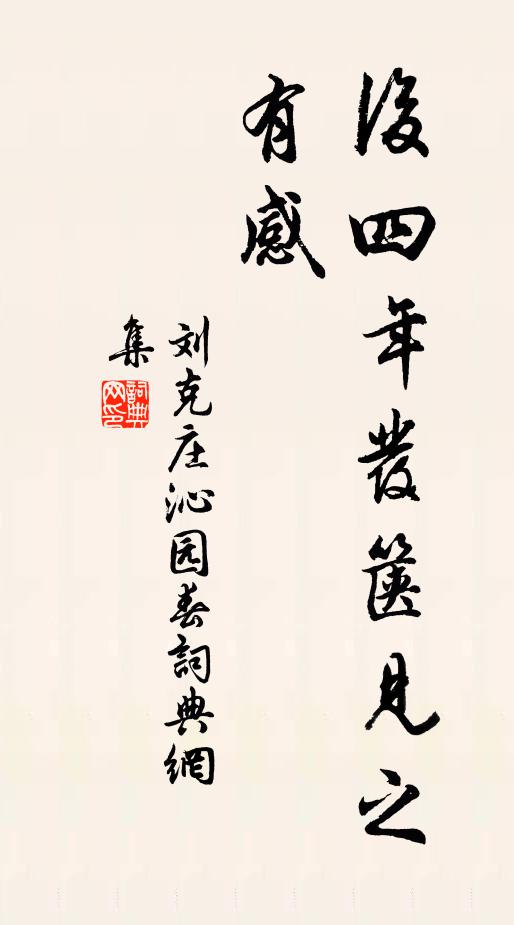 後四年發箧見之
有感
刘克庄沁园春詞典網
集
詞典网印